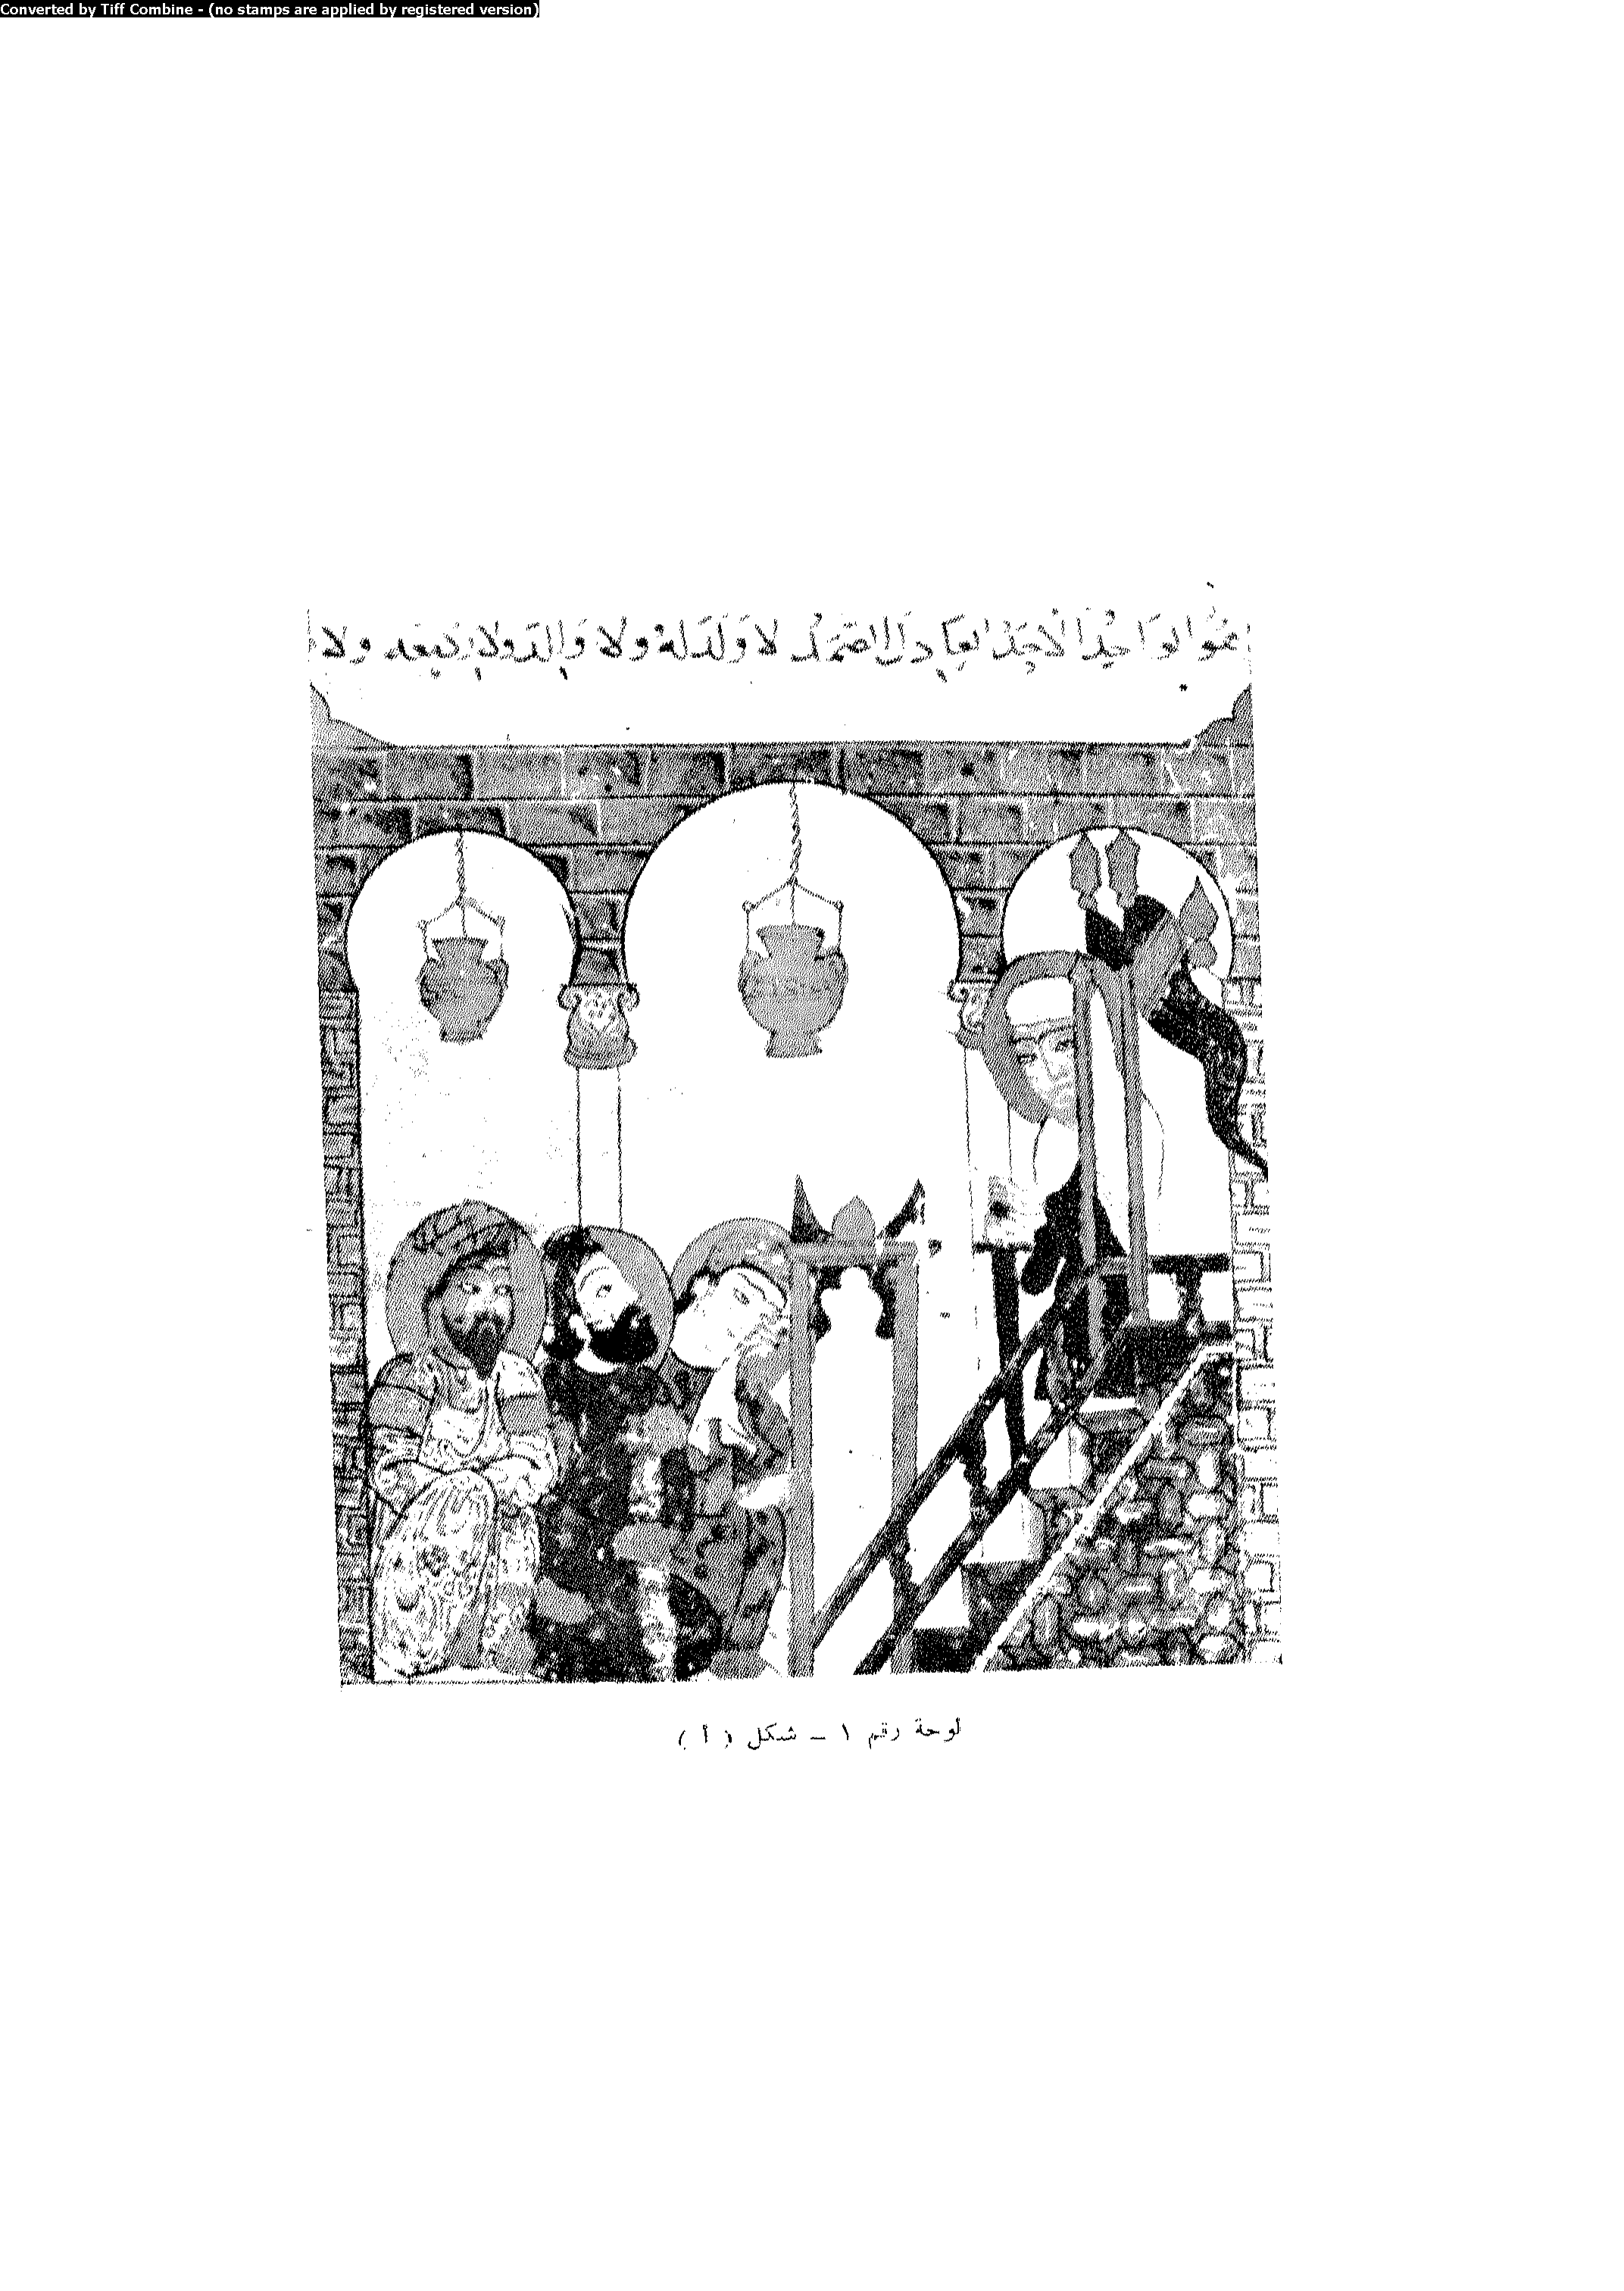 Converted by Tiff Combine - (no stamps are applied by registered version)
الأحد العادل الصمد لا ولد له ولا والد ولا ولا
لوحة رقم ١ – شكل ( أ )